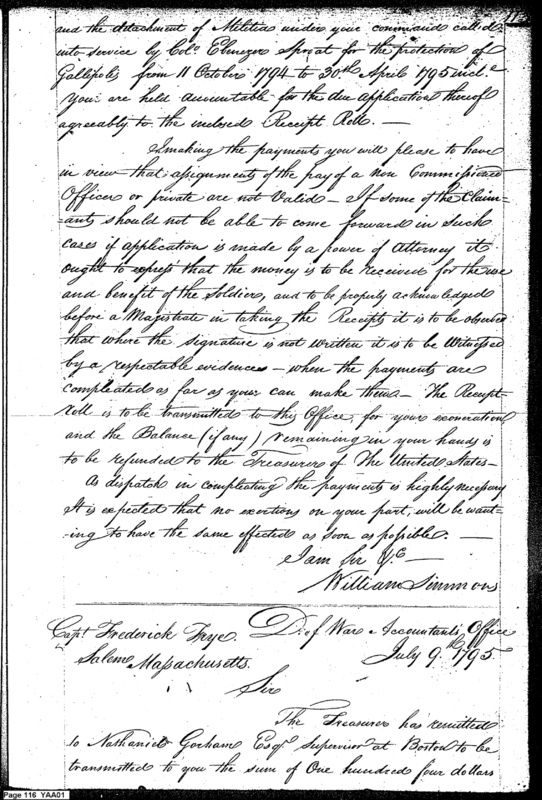 and the detachment of Militia under your command called
into service by Colo. Ebenezer Sproat for the protection of
Gallipolis from 11 October 1794 to 30th April 1795 incle.
You are held accountable for the due application thereof
agreeably to the inclosed Receipt Roll. —
In making the payments you will please to have
in view that assignments of the pay of a non Commissioned
Officer or private are not Valid – If some of the Claim-
-ants should not be able to come forward in such
cases if application is made by a power of Attorney it
ought to express that the money is to be received for the use
and benefit of the Soldier, and to be properly acknowledged
before a Magistrate in taking the Receipts it is to be observed
that where the signature is not written it is to be Witnessed
by a respectable evidence – when the payments are
compleated as far as you can make them – The Receipt
roll is to be transmitted to this Office for your exoneration
and the Balance (if any) remaining in your hands is
to be refunded to the Treasurer of The United States –
As dispatch in compleating the payments is highly necessary
It is expected that no exertions on your part, will be want-
-ing to have the same effected as soon as possible. —
I am Sir &c
William Simmons
Capt Frederick Frye D. of War Accountants Office
Salem Massachusetts. July 9th 1795
Sir
The Treasurer has remitted
to Nathaniel Gorham Esqr Supervisor at Boston to be
transmitted to you the sum of One hundred four dollars
Page 116 YAA01